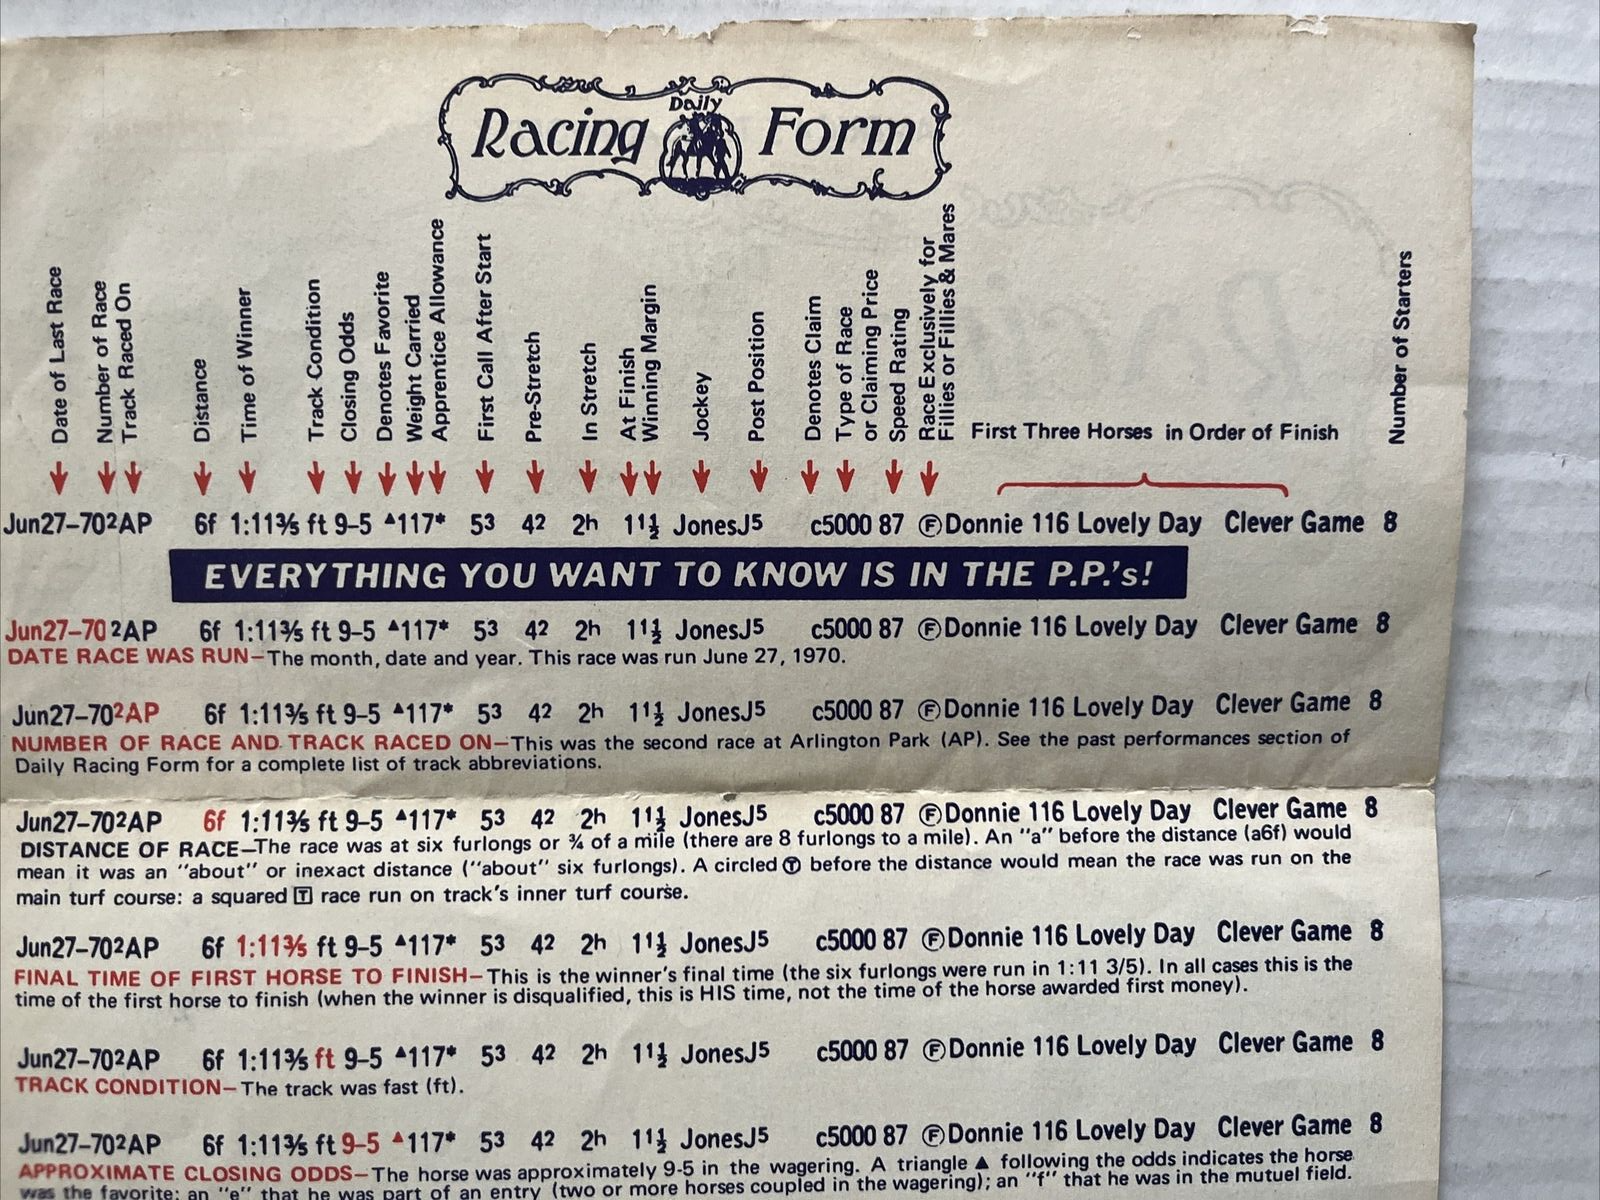 Daily
Racing Form
Date of Last Race
Number of Race
Track Raced On
Distance
Time of Winner
Track Condition
Closing Odds
Denotes Favorite
Weight Carried
Apprentice Allowance
First Call After Start
Pre-Stretch
In Stretch
At Finish
Winning Margin
Jockey
Post Position
Denotes Claim
Type of Race
or Claiming Price
Speed Rating
Race Exclusively for
Fillies or Fillies & Mares
First Three Horses in Order of Finish
Number of Starters
Jun27–70²AP 6f 1:11⅗ ft 9–5 ▲117* 5³ 4² 2ʰ 1¹½ JonesJ⁵ c5000 87 ⒻDonnie 116 Lovely Day Clever Game 8
EVERYTHING YOU WANT TO KNOW IS IN THE P.P.'s!
Jun27–70²AP 6f 1:11⅗ ft 9–5 ▲117* 5³ 4² 2ʰ 1¹½ JonesJ⁵ c5000 87 ⒻDonnie 116 Lovely Day Clever Game 8
DATE RACE WAS RUN—The month, date and year. This race was run June 27, 1970.
Jun27–70²AP 6f 1:11⅗ ft 9–5 ▲117* 5³ 4² 2ʰ 1¹½ JonesJ⁵ c5000 87 ⒻDonnie 116 Lovely Day Clever Game 8
NUMBER OF RACE AND TRACK RACED ON—This was the second race at Arlington Park (AP). See the past performances section of
Daily Racing Form for a complete list of track abbreviations.
Jun27–70²AP 6f 1:11⅗ ft 9–5 ▲117* 5³ 4² 2ʰ 1¹½ JonesJ⁵ c5000 87 ⒻDonnie 116 Lovely Day Clever Game 8
DISTANCE OF RACE—The race was at six furlongs or ¾ of a mile (there are 8 furlongs to a mile). An "a" before the distance (a6f) would
mean it was an "about" or inexact distance ("about" six furlongs). A circled Ⓣ before the distance would mean the race was run on the
main turf course: a squared 🅃 race run on track's inner turf course.
Jun27–70²AP 6f 1:11⅗ ft 9–5 ▲117* 5³ 4² 2ʰ 1¹½ JonesJ⁵ c5000 87 ⒻDonnie 116 Lovely Day Clever Game 8
FINAL TIME OF FIRST HORSE TO FINISH—This is the winner's final time (the six furlongs were run in 1:11 3/5). In all cases this is the
time of the first horse to finish (when the winner is disqualified, this is HIS time, not the time of the horse awarded first money).
Jun27–70²AP 6f 1:11⅗ ft 9–5 ▲117* 5³ 4² 2ʰ 1¹½ JonesJ⁵ c5000 87 ⒻDonnie 116 Lovely Day Clever Game 8
TRACK CONDITION—The track was fast (ft).
Jun27–70²AP 6f 1:11⅗ ft 9–5 ▲117* 5³ 4² 2ʰ 1¹½ JonesJ⁵ c5000 87 ⒻDonnie 116 Lovely Day Clever Game 8
APPROXIMATE CLOSING ODDS—The horse was approximately 9-5 in the wagering. A triangle ▲ following the odds indicates the horse
was the favorite; an "e" that he was part of an entry (two or more horses coupled in the wagering); an "f" that he was in the mutuel field.